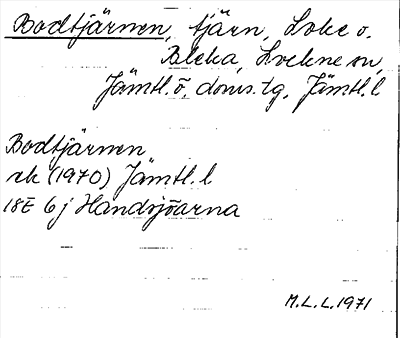 Bodtjärnen, tjärn, Loke o.
Bleka, Lockne sn,
Jämtl. ö. doms. tg, Jämtl. l
Bodtjärnen
ek (1970) Jämtl. l
18E 6j Handsjöarna
M.L.L. 1971